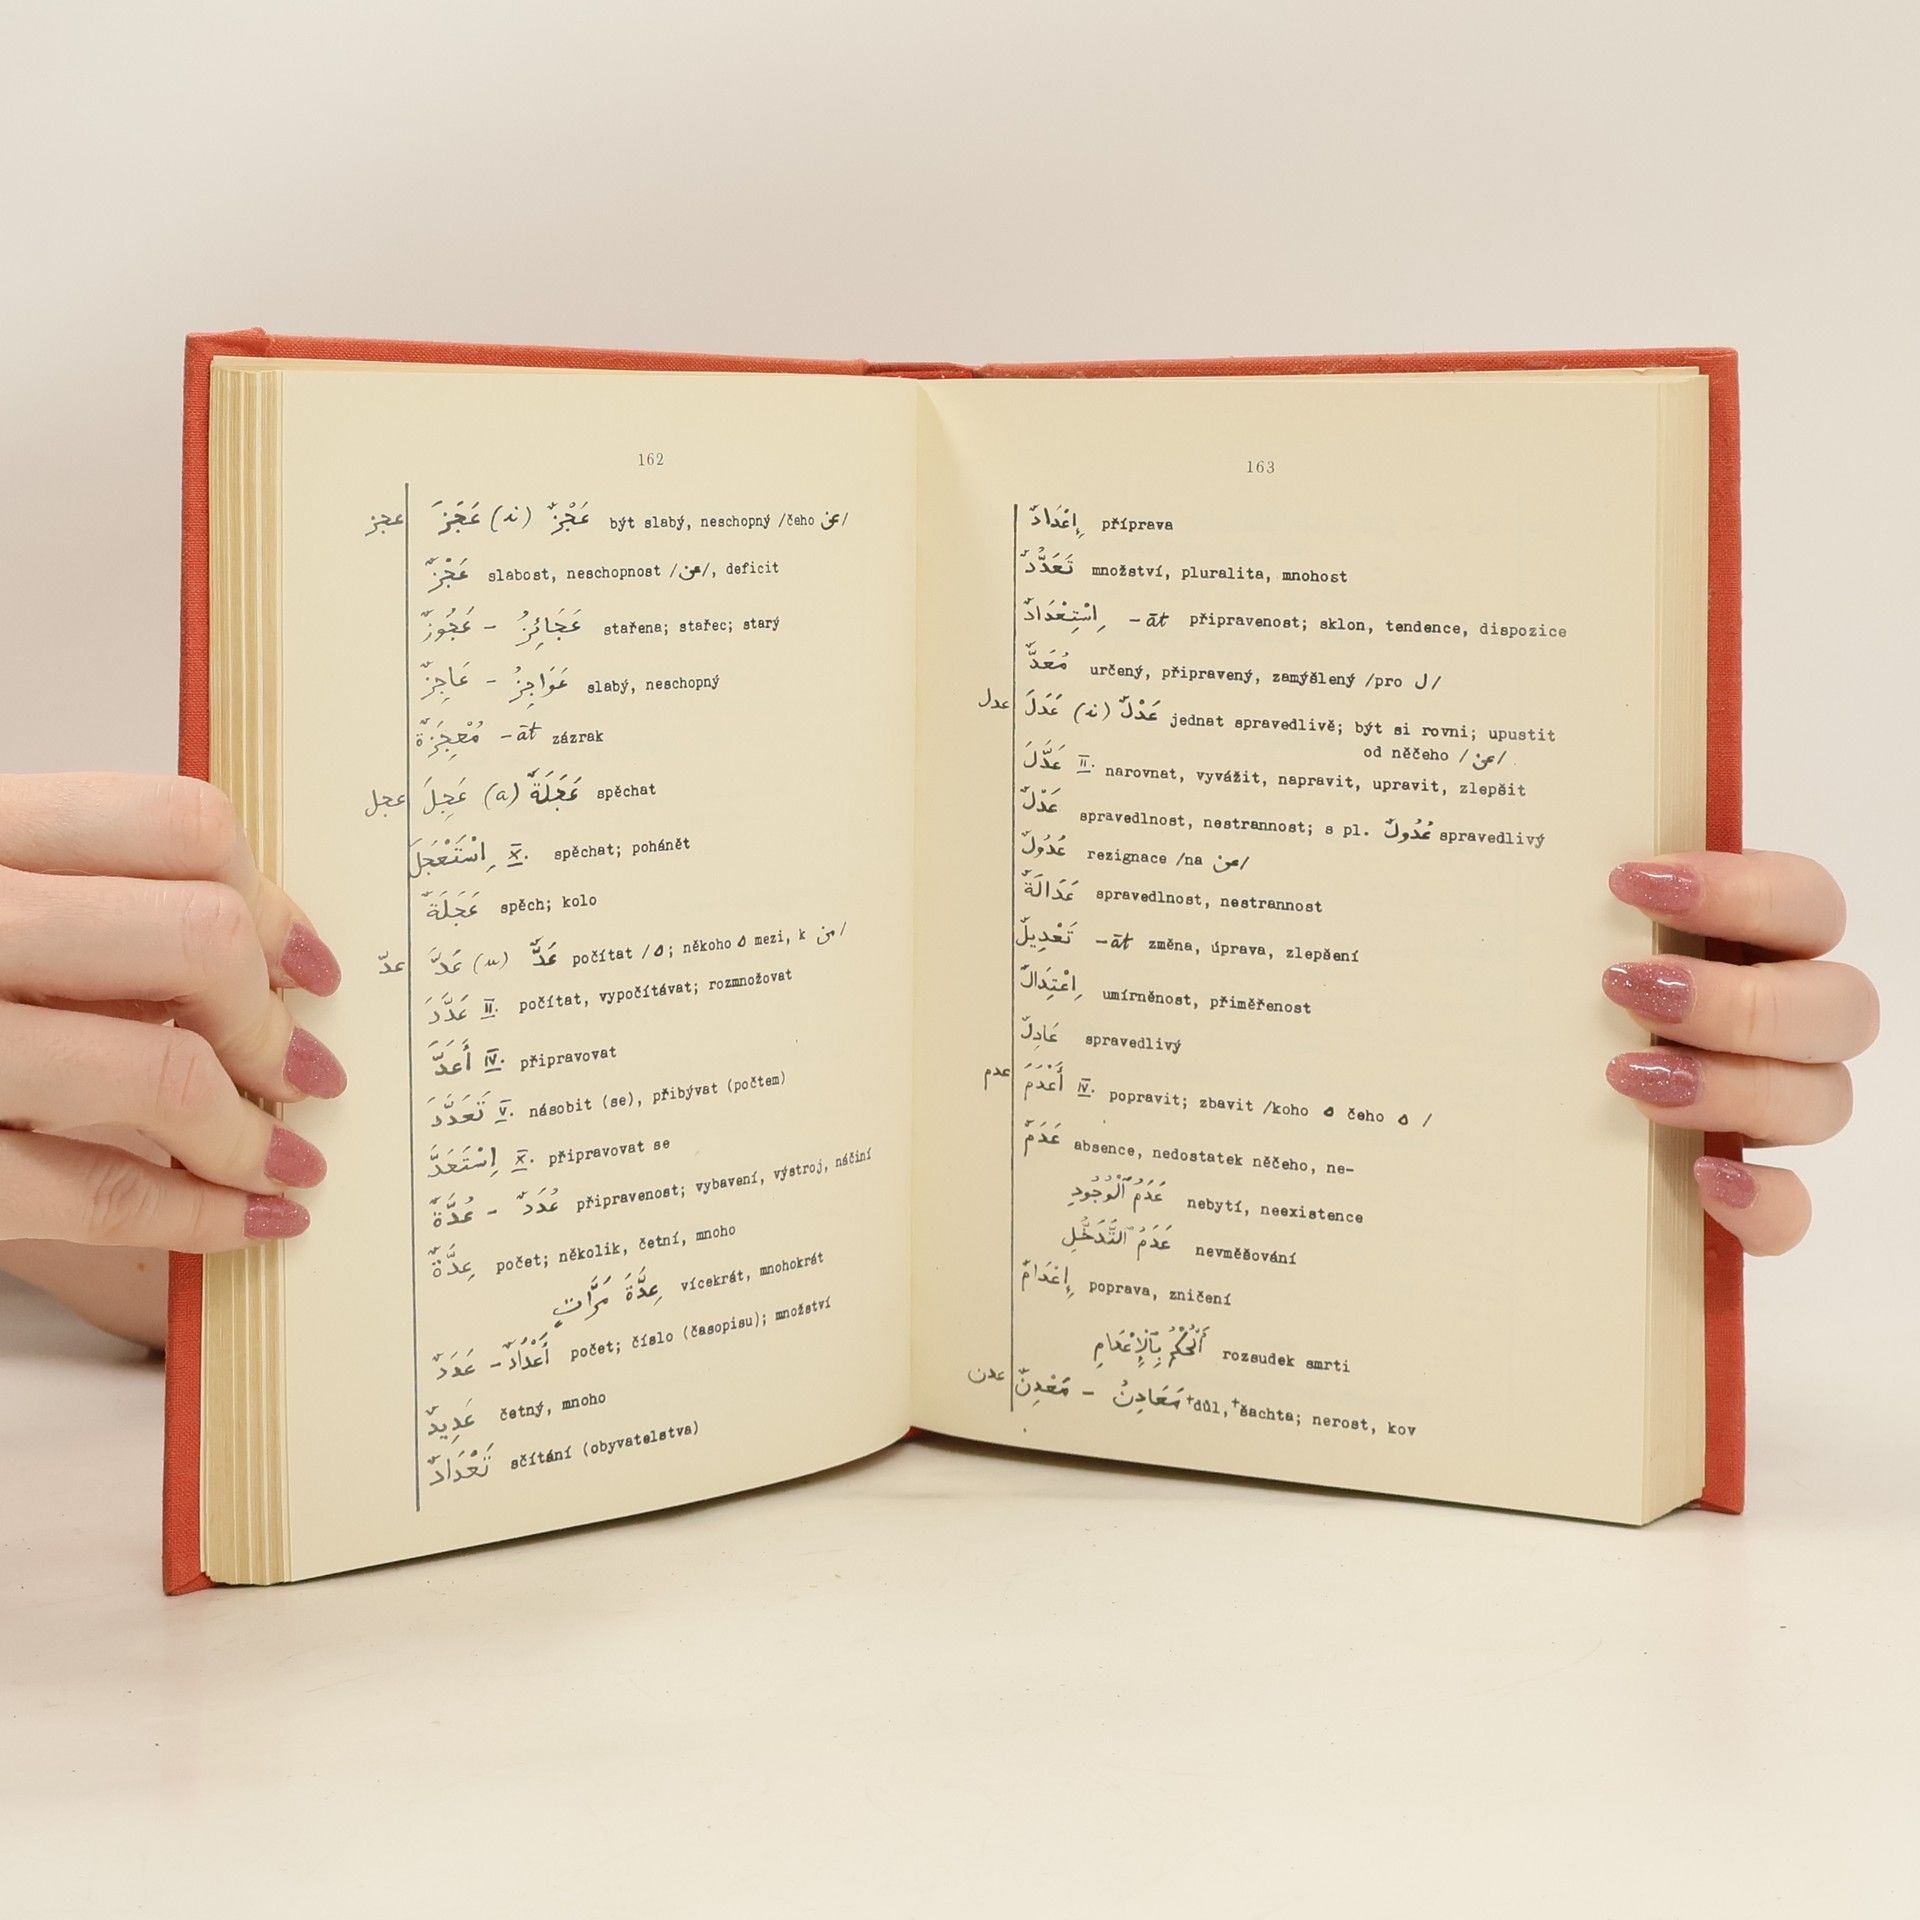 162
عجز عَجَزَ (i) عَجْزٌ být slabý, neschopný /čeho عن/
عَجْزٌ slabost, neschopnost /عن/, deficit
عَجُوزٌ - عَجَائِزُ stařena; stařec; starý
عَاجِزٌ - عَوَاجِزُ slabý, neschopný
مُعْجِزَةٌ -āt zázrak
عجل عَجِلَ (a) عَجَلَةٌ spěchat
اِسْتَعْجَلَ X. spěchat; pohánět
عَجَلَةٌ spěch; kolo
عدّ عَدَّ (u) عَدٌّ počítat /ه; někoho ه mezi, k من/
عَدَّدَ II. počítat, vypočítávat; rozmnožovat
أَعَدَّ IV. připravovat
تَعَدَّدَ V. násobit (se), přibývat (počtem)
اِسْتَعَدَّ X. připravovat se
عُدَّةٌ - عُدَدٌ připravenost; vybavení, výstroj, náčiní
عِدَّةٌ počet; několik, četní, mnoho
عِدَّةَ مَرَّاتٍ vícekrát, mnohokrát
عَدَدٌ - أَعْدَادٌ počet; číslo (časopisu); množství
عَدِيدٌ četný, mnoho
تَعْدَادٌ sčítání (obyvatelstva)
163
إِعْدَادٌ příprava
تَعَدُّدٌ množství, pluralita, mnohost
اِسْتِعْدَادٌ -āt připravenost; sklon, tendence, dispozice
مُعَدٌّ určený, připravený, zamýšlený /pro ل/
عدل عَدَلَ (i) عَدْلٌ jednat spravedlivě; být si rovni; upustit
od něčeho /عن/
عَدَّلَ II. narovnat, vyvážit, napravit, upravit, zlepšit
عَدْلٌ spravedlnost, nestrannost; s pl. عُدُولٌ spravedlivý
عُدُولٌ rezignace /na عن/
عَدَالَةٌ spravedlnost, nestrannost
تَعْدِيلٌ -āt změna, úprava, zlepšení
اِعْتِدَالٌ umírněnost, přiměřenost
عَادِلٌ spravedlivý
عدم أَعْدَمَ IV. popravit; zbavit /koho ه čeho ه /
عَدَمٌ absence, nedostatek něčeho, ne-
عَدَمُ ٱلْوُجُودِ nebytí, neexistence
عَدَمُ ٱلتَّدَخُّلِ nevměšování
إِعْدَامٌ poprava, zničení
أَلْحُكْمُ بِٱلْإِعْدَامِ rozsudek smrti
عدن مَعْدِنٌ - مَعَادِنُ +důl,+šachta; nerost, kov